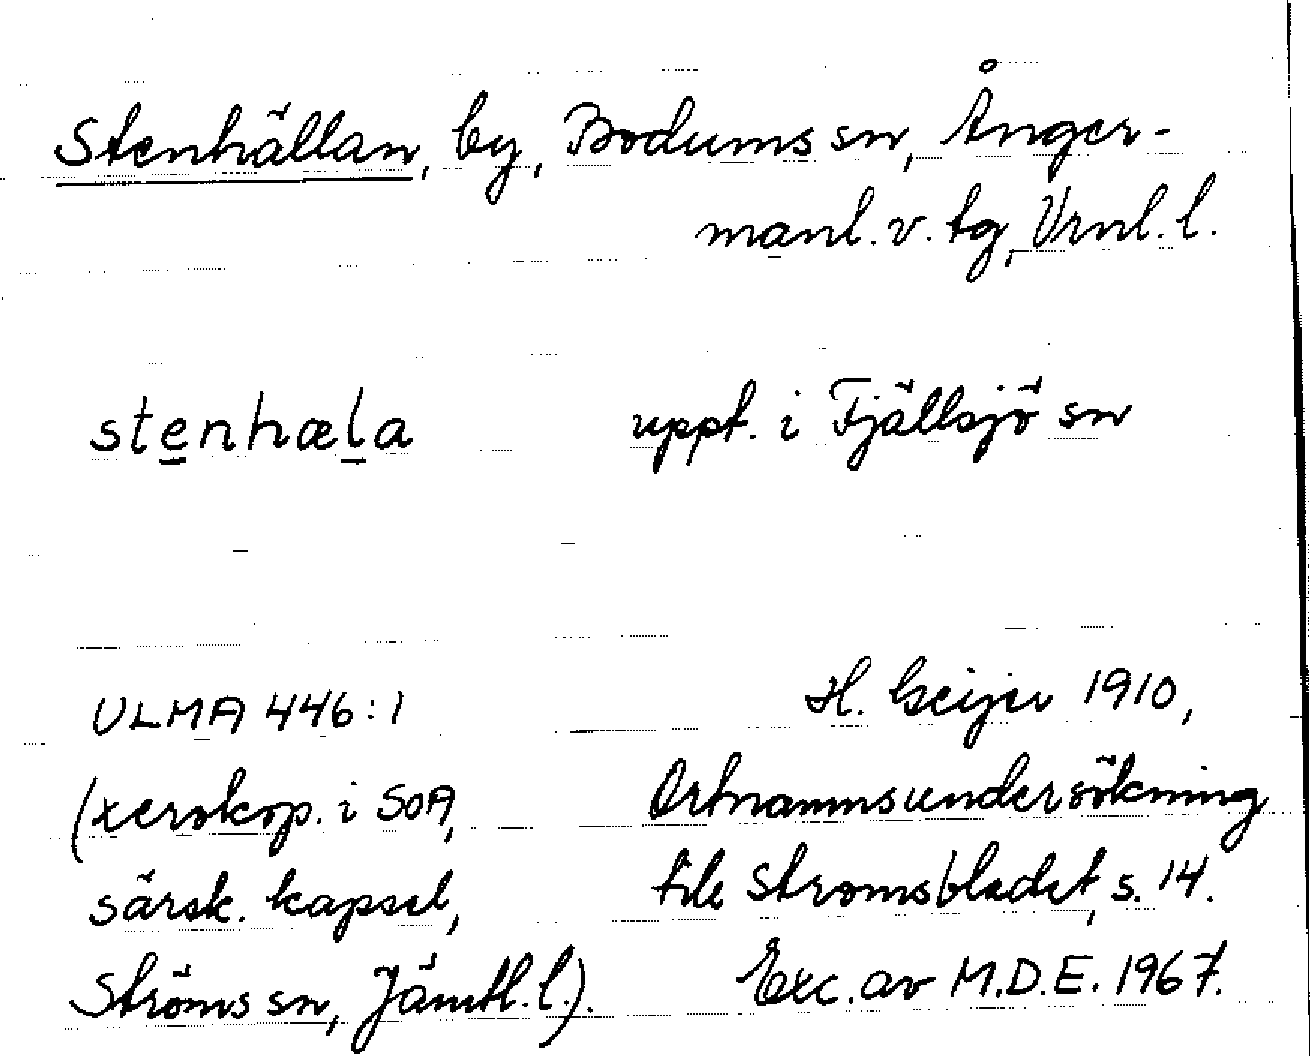 Stenhällan, by, Bodums sn, Ånger-
manl. v. tg, Vrnl. l.
stenhæla uppt. i Fjällsjö sn
ULMA 446:1 H. Geijer 1910,
(xerokop. i SOA, Ortnamnsundersökning
särsk. kapsel, till Stromsbladet, s. 14.
Ströms sn, Jämtl. l.). Exc. av M.D.E. 1967.